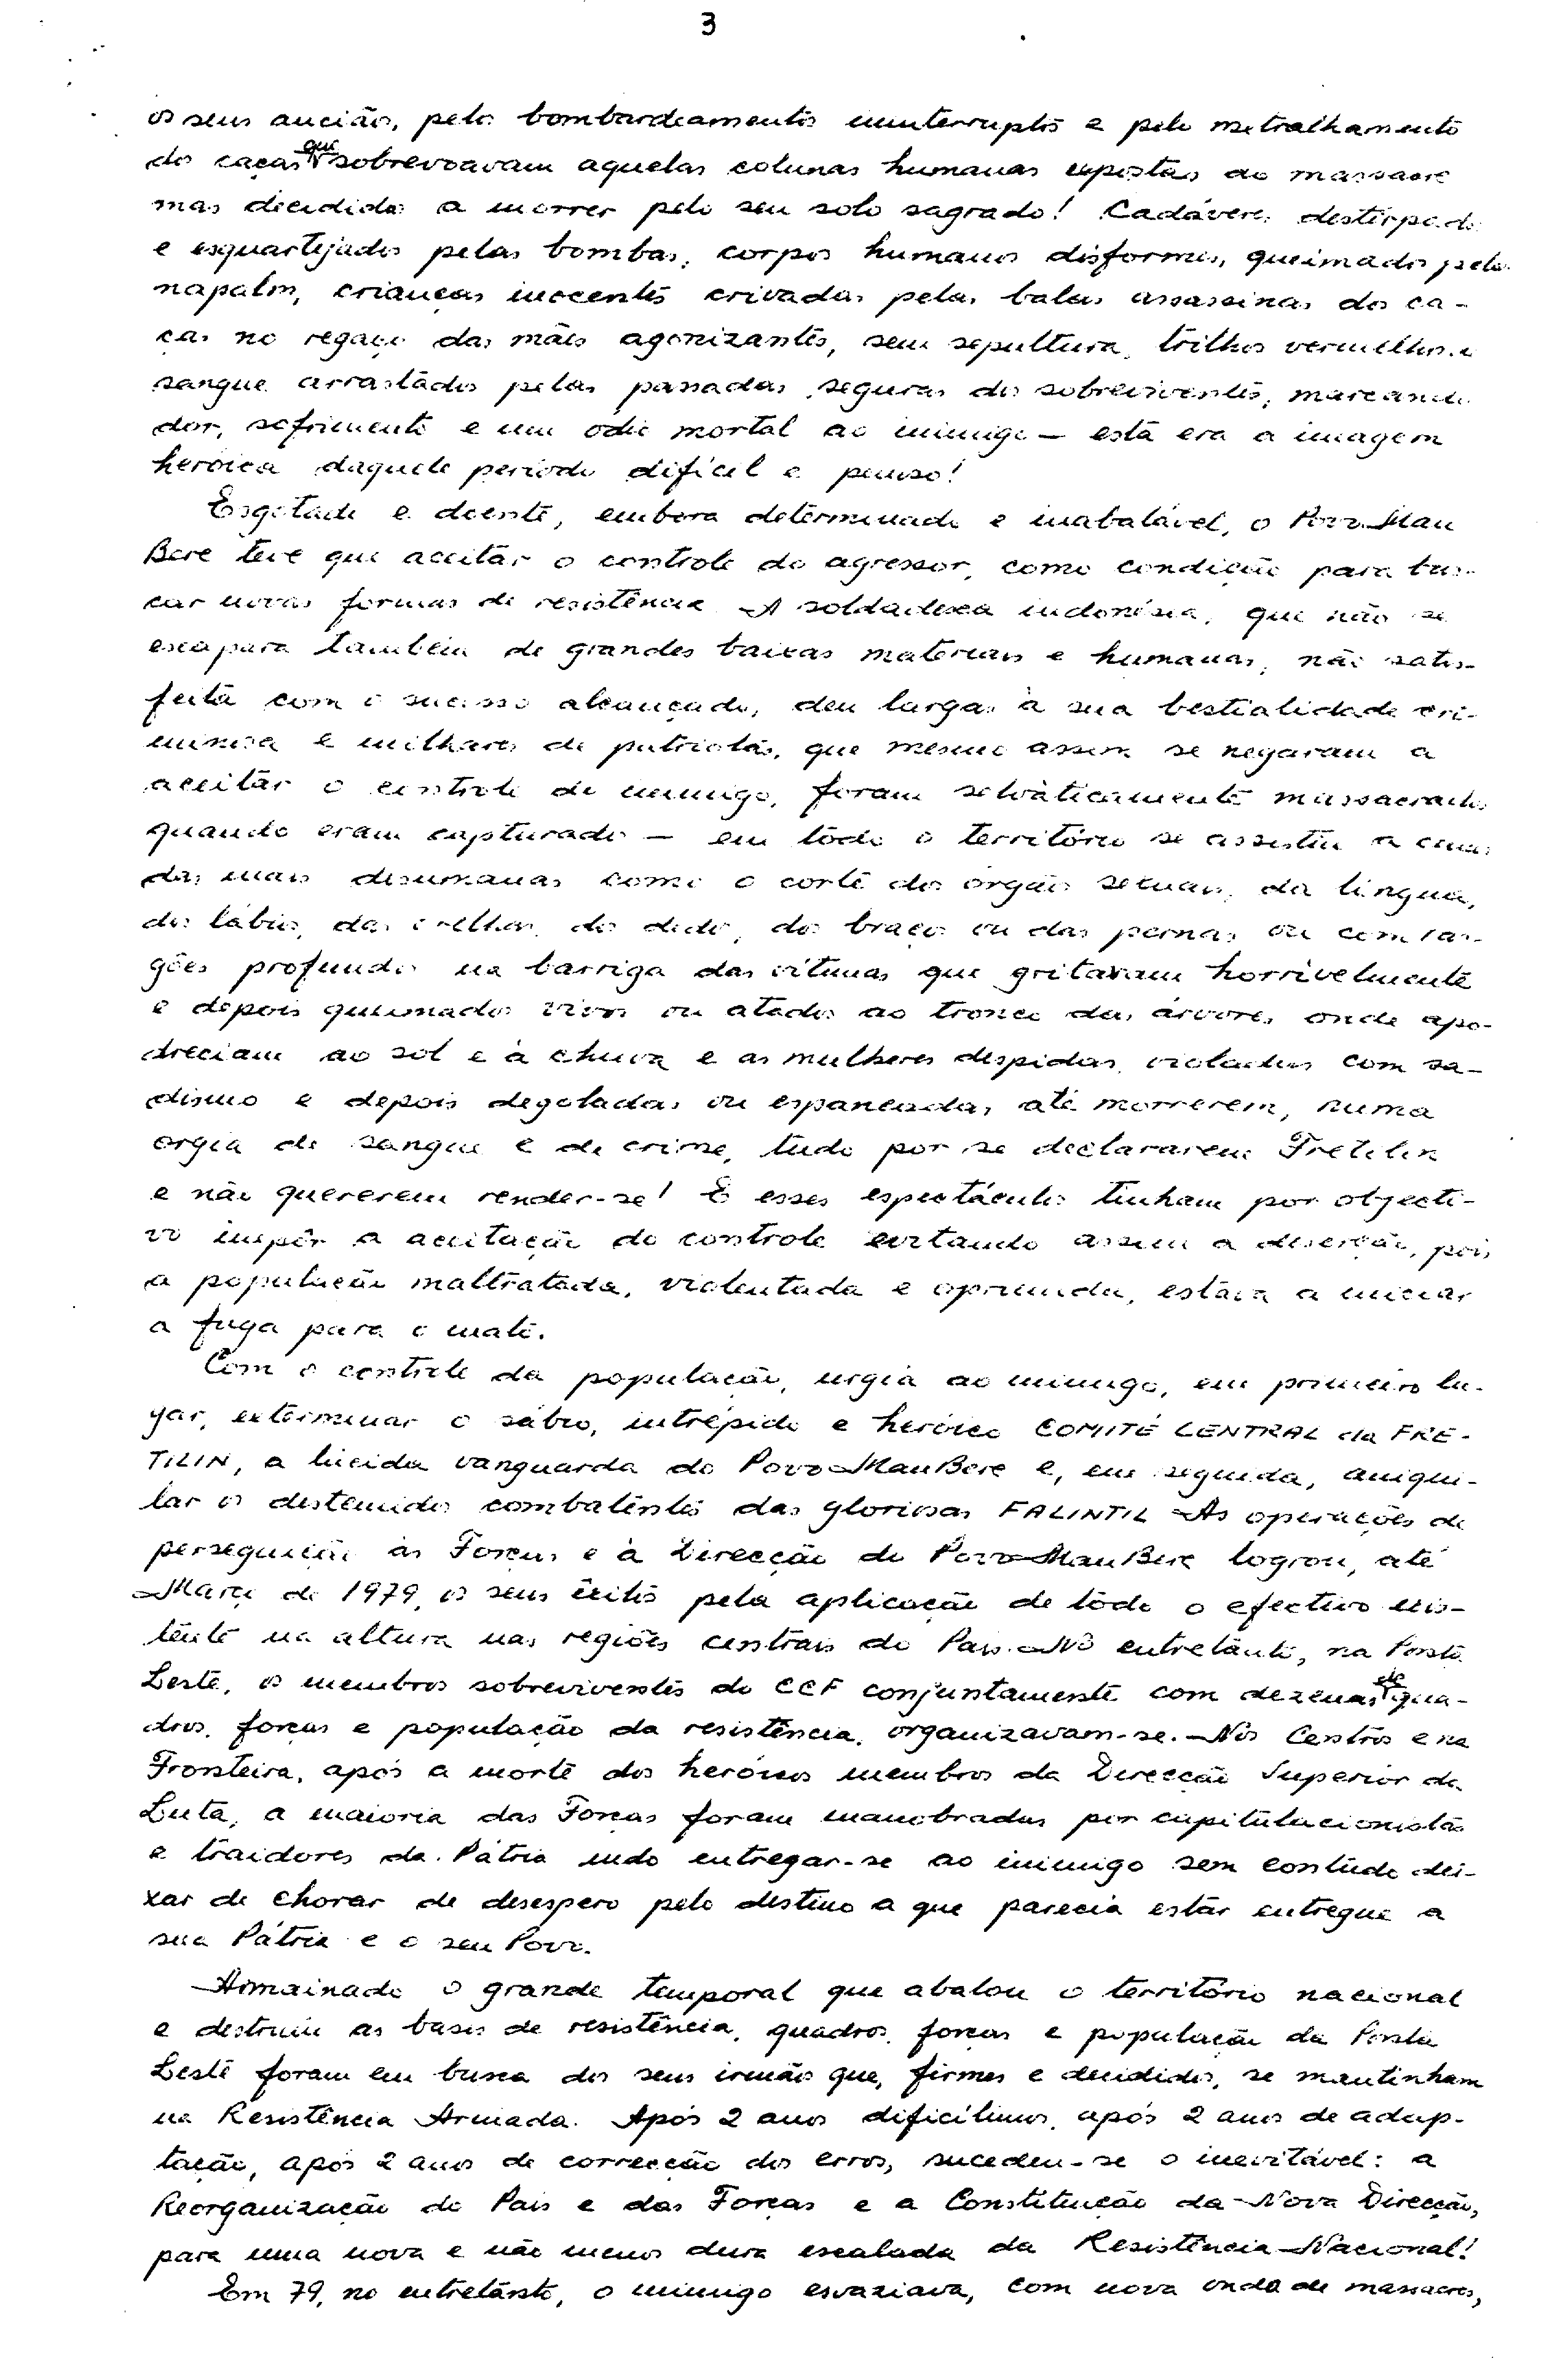 3
os seus anciãos, pelos bombardeamentos ininterruptos e pelo metralhamento
dos caças que sobrevoavam aquelas colunas humanas expostas ao massacre
mas decididos a morrer pelo seu solo sagrado! Cadáveres destripados
e esquartejados pelas bombas, corpos humanos disformes, queimados pelo
napalm, crianças inocentes crivadas pelas balas assassinas dos ca-
ças no regaço das mães agonizantes, sem sepultura, trilhos vermelhos de
sangue arrastados pelas passadas seguras dos sobreviventes, marcando
dor, sofrimento e um ódio mortal ao inimigo — esta era a imagem
heróica daquele período difícil e penoso!
Esgotado e doente, embora determinado e inabalável, o Povo Mau
Bere teve que aceitar o controle do agressor, como condição para bus-
car novas formas de resistência. A soldadesca indonésia, que não se
escapara também de grandes baixas materiais e humanas, não satis-
feita com o sucesso alcançado, deu largas à sua bestialidade cri-
minosa e milhares de patriotas, que mesmo assim se negaram a
aceitar o controle do inimigo, foram selvàticamente massacrados
quando eram capturados — em todo o território se assistiu a cenas
das mais desumanas como o corte dos órgãos sexuais, da língua,
dos lábios, das orelhas, dos dedos, dos braços ou das pernas ou com ras-
gões profundos na barriga das vítimas que gritavam horrivelmente
e depois queimados vivos ou atados ao tronco das árvores onde apo-
dreciam ao sol e à chuva e as mulheres despidas, violadas com sa-
dismo e depois degoladas ou espancadas até morrerem, numa
orgia de sangue e de crime, tudo por se declararem Fretilin
e não quererem render-se! E esses espectáculos tinham por objecti-
vo impôr a aceitação do controle evitando assim a deserção, pois
a população maltratada, violentada e oprimida, estava a iniciar
a fuga para o mato.
Com o controle da população, urgia ao inimigo, em primeiro lu-
gar, exterminar o sábio, intrépido e heróico COMITÉ CENTRAL da FRE-
TILIN, a lúcida vanguarda do Povo MauBere e, em seguida, aniqui-
lar os destemidos combatentes das gloriosas FALINTIL. As operações de
perseguição às Forças e à Direcção do Povo MauBere logrou, até
Março de 1979, os seus êxitos pela aplicação de todo o efectivo exis-
tente na altura nas regiões centrais do País. No entretanto, na Ponta
Leste, os membros sobreviventes do CCF conjuntamente com dezenas de qua-
dros, forças e população da resistência, organizavam-se. Nos Centros e na
Fronteira, após a morte dos heróicos membros da Direcção Superior da
Luta, a maioria das Forças foram manobradas por capitulacionistas
e traidores da Pátria indo entregar-se ao inimigo sem contudo dei-
xar de chorar de desespero pelo destino a que parecia estar entregue a
sua Pátria e o seu Povo.
Amainado o grande temporal que abalou o território nacional
e destruiu as bases de resistência, quadros, forças e população da Ponta
Leste foram em busca dos seus irmãos que, firmes e decididos, se mantinham
na Resistência Armada. Após 2 anos dificílimos, após 2 anos de adap-
tação, após 2 anos de correcção dos erros, sucedeu-se o inevitável: a
Reorganização do País e das Forças e a Constituição da Nova Direcção,
para uma nova e não menos dura escalada da Resistência Nacional!
Em 79, no entretanto, o inimigo esvaziava, com nova onda de massacres,